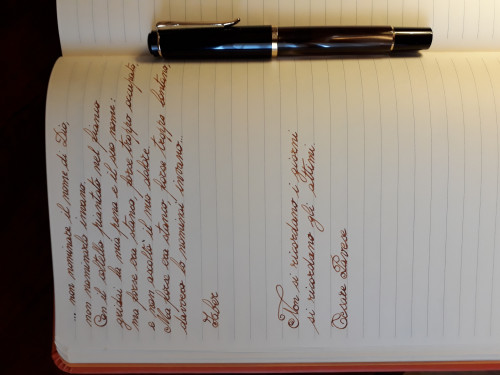 ... non nominare il nome di Dio,
non nominarlo invano.
Con un coltello piantato nel fianco
gridai la mia pena e il suo nome:
ma forse era stanco, forse troppo occupato,
e non ascoltò il mio dolore.
Ma forse era stanco, forse troppo lontano,
davvero lo nominai invano...
Faber
Non si ricordano i giorni
si ricordano gli attimi.
Cesare Pavese